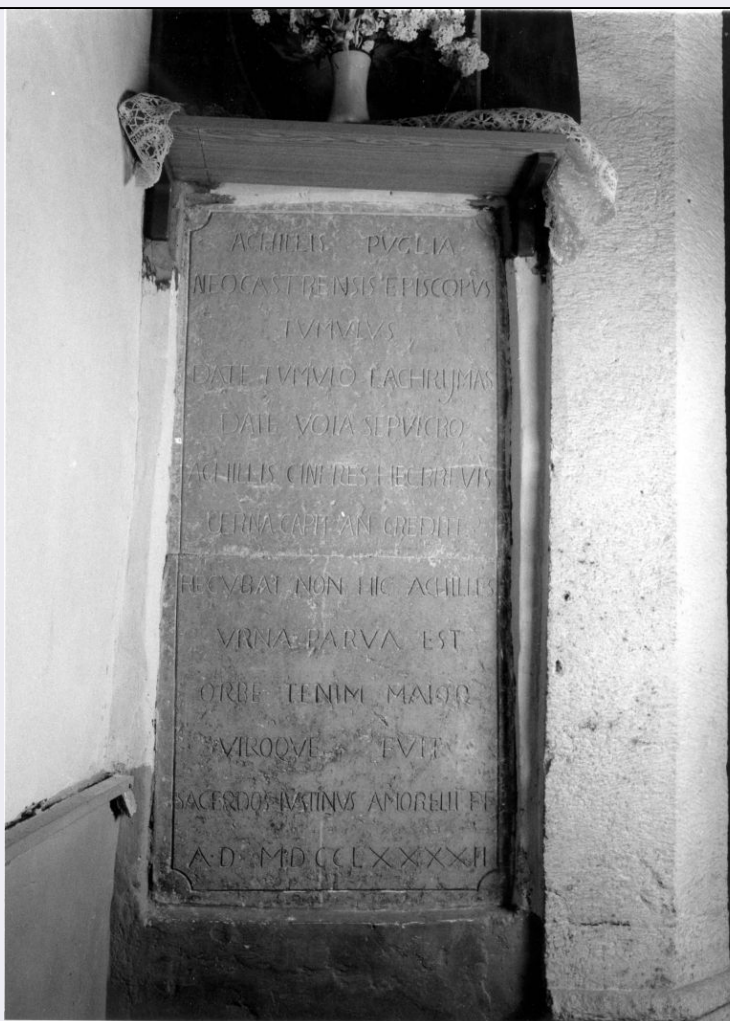 ACHILLIS PVGLIA
NEOCASTRENSIS EPISCOPVS
TVMVLVS
DATE TVMVLO LACHRIJMAS
DATE VOTA SEPVLCRO
ACHILLIS CINERES HEC BREVIS
VERNA CAPIT AN CREDITI
HECVBAT NON HIC ACHILLES
VRNA PARVA EST
ORBE TENIM MAIOR
VTROQVE FVIT
SACERDOS IVSTINVS AMORELII FF
A D MDCCLXXXXII